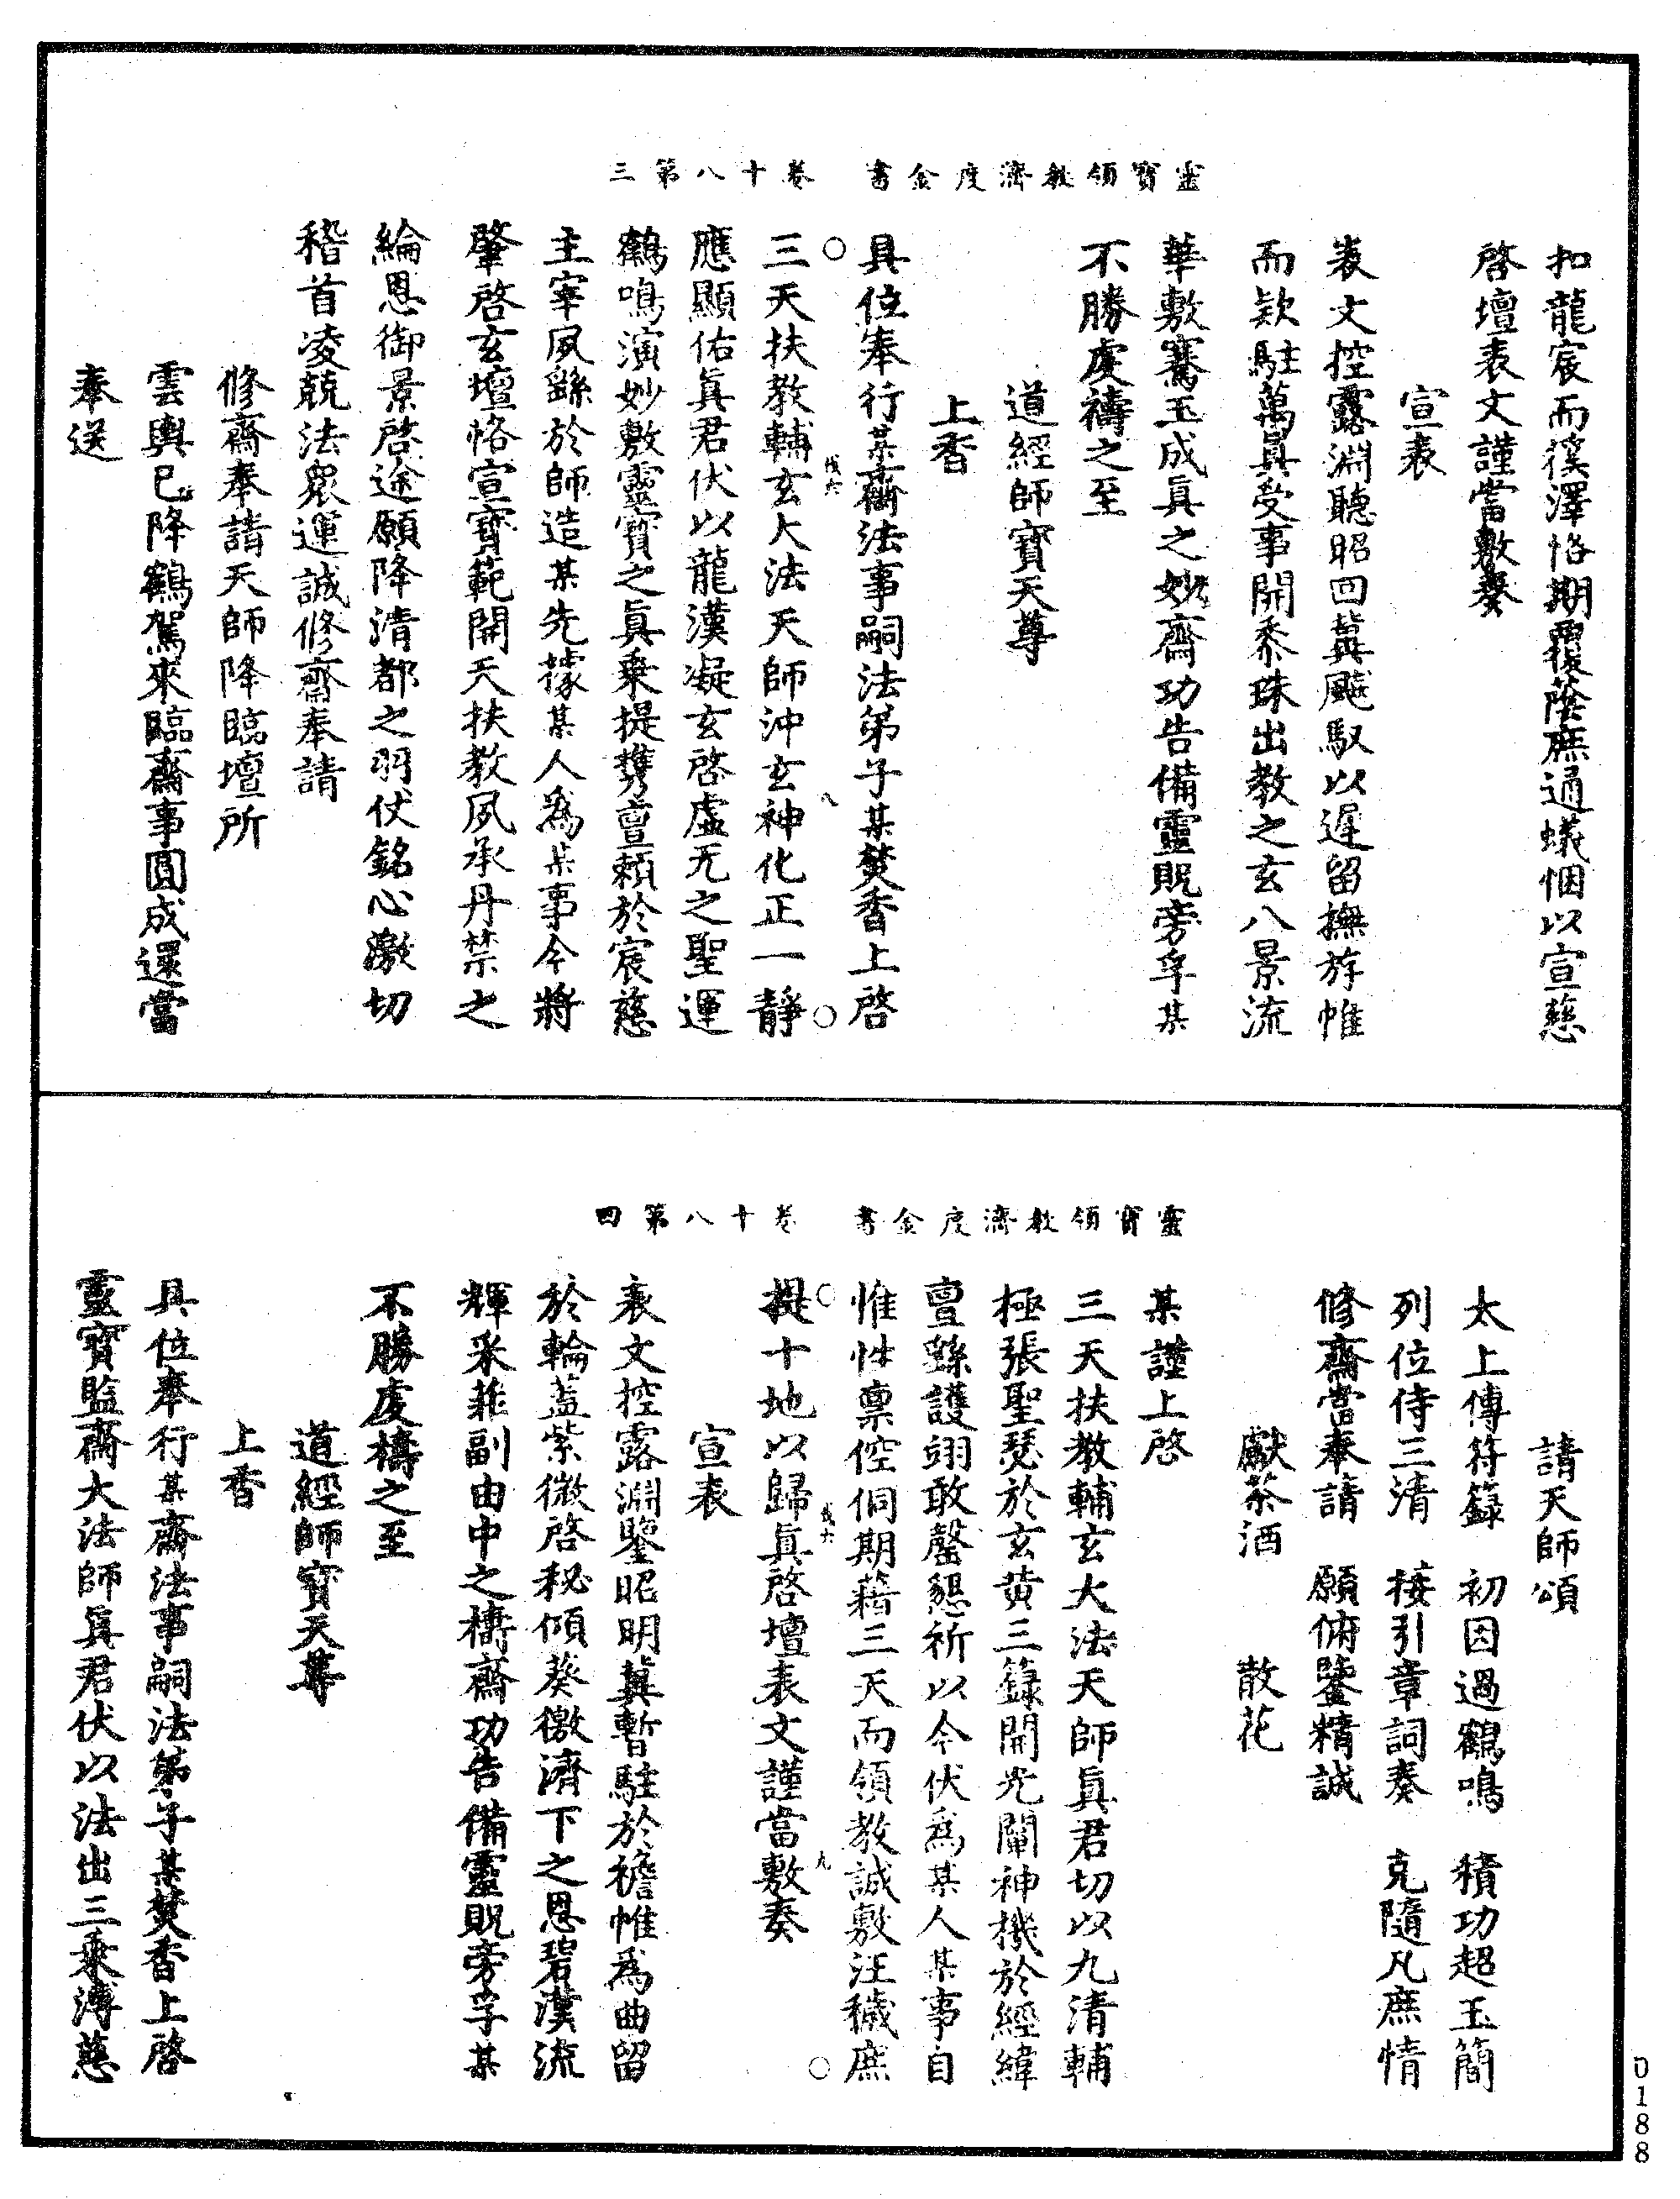 靈寶領教濟度金書　卷十八第三
扣龍宸而徯澤恪期覆蔭庶通蟻悃以宣慈
啓壇表文謹當敷奏
宣表
表文控露淵聽昭回冀飈馭以遲留撫斿帷
而欵駐萬眞受事開黍珠出教之玄八景流
華敷騫玉成眞之妙齋功告備靈貺旁孚某
不勝虔禱之至
道經師寶天尊
上香
具位奉行某齋法事嗣法弟子某焚香上啓
三天扶教輔玄大法天師沖玄神化正一靜
應顯佑眞君伏以龍漢凝玄啓虛无之聖運
鶴鳴演妙敷靈寶之眞乗提攜亶頼於宸慈
主宰夙繇於師造某先據某人爲某事今將
肇啓玄壇恪宣寶範開天扶教夙承丹禁之
綸恩御景啓途願降清都之羽仗銘心激切
稽首凌兢法衆運誠修齋奉請
修齋奉請天師降臨壇所
雲輿已降鶴駕來臨齋事圓成還當
奉送
靈寶領教濟度金書　卷十八第四
請天師頌
太上傳符籙　初因過鶴鳴　積功超玉簡
列位侍三清　接引章詞奏　克隨凡庶情
修齋當奉請　願俯鑒精誠
獻茶酒　散花
某謹上啓
三天扶教輔玄大法天師眞君切以九清輔
極張聖瑟於玄黄三籙開光闡神機於經緯
亶繇護翊敢罄懇祈以今伏爲某人某事自
惟性禀倥侗期藉三天而領教誠敷汪穢庶
提十地以歸眞啓壇表文謹當敷奏
宣表
表文控露淵鑒昭明冀暫駐於襜帷爲曲留
於輪蓋紫微啓秘傾葵徼濟下之恩碧漢流
輝采菲副由中之禱齋功告備靈貺旁孚某
不勝虔禱之至
道經師寶天尊
上香
具位奉行某齋法事嗣法弟子某焚香上啓
靈寶監齋大法師眞君伏以法出三乗溥慈
0188